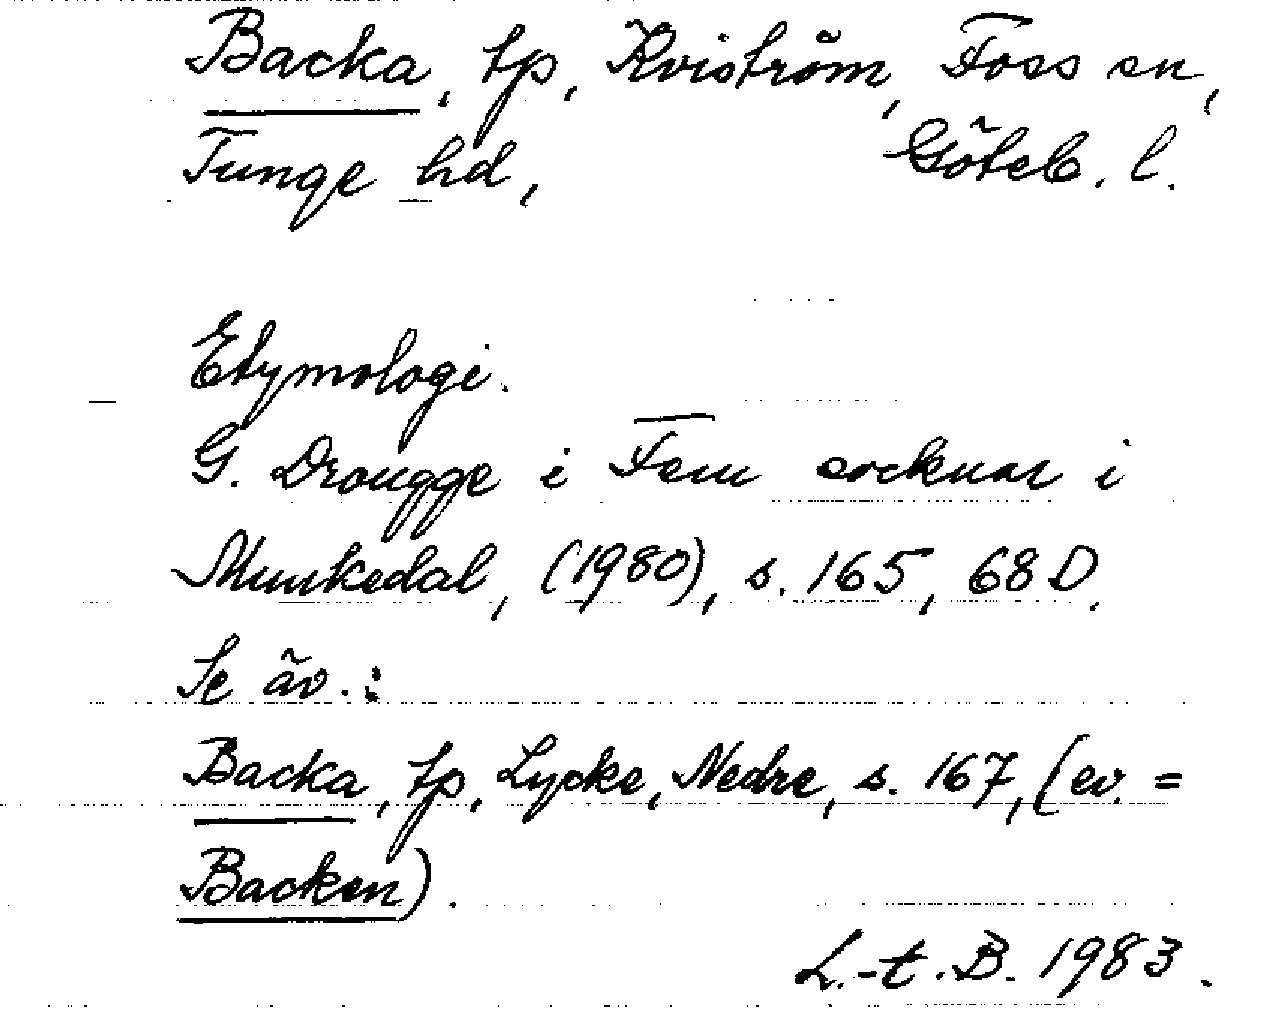 Backa, tp, Kviström, Foss sn,
Tunge hd, Göteb. l.
Etymologi.
G. Drougge i Fem socknar i
Munkedal, (1980), s. 165, 68 D.
Se äv.:
Backa, tp, Lycke, Nedre, s. 167, (ev. =
Backen).
L.-t. B. 1983.